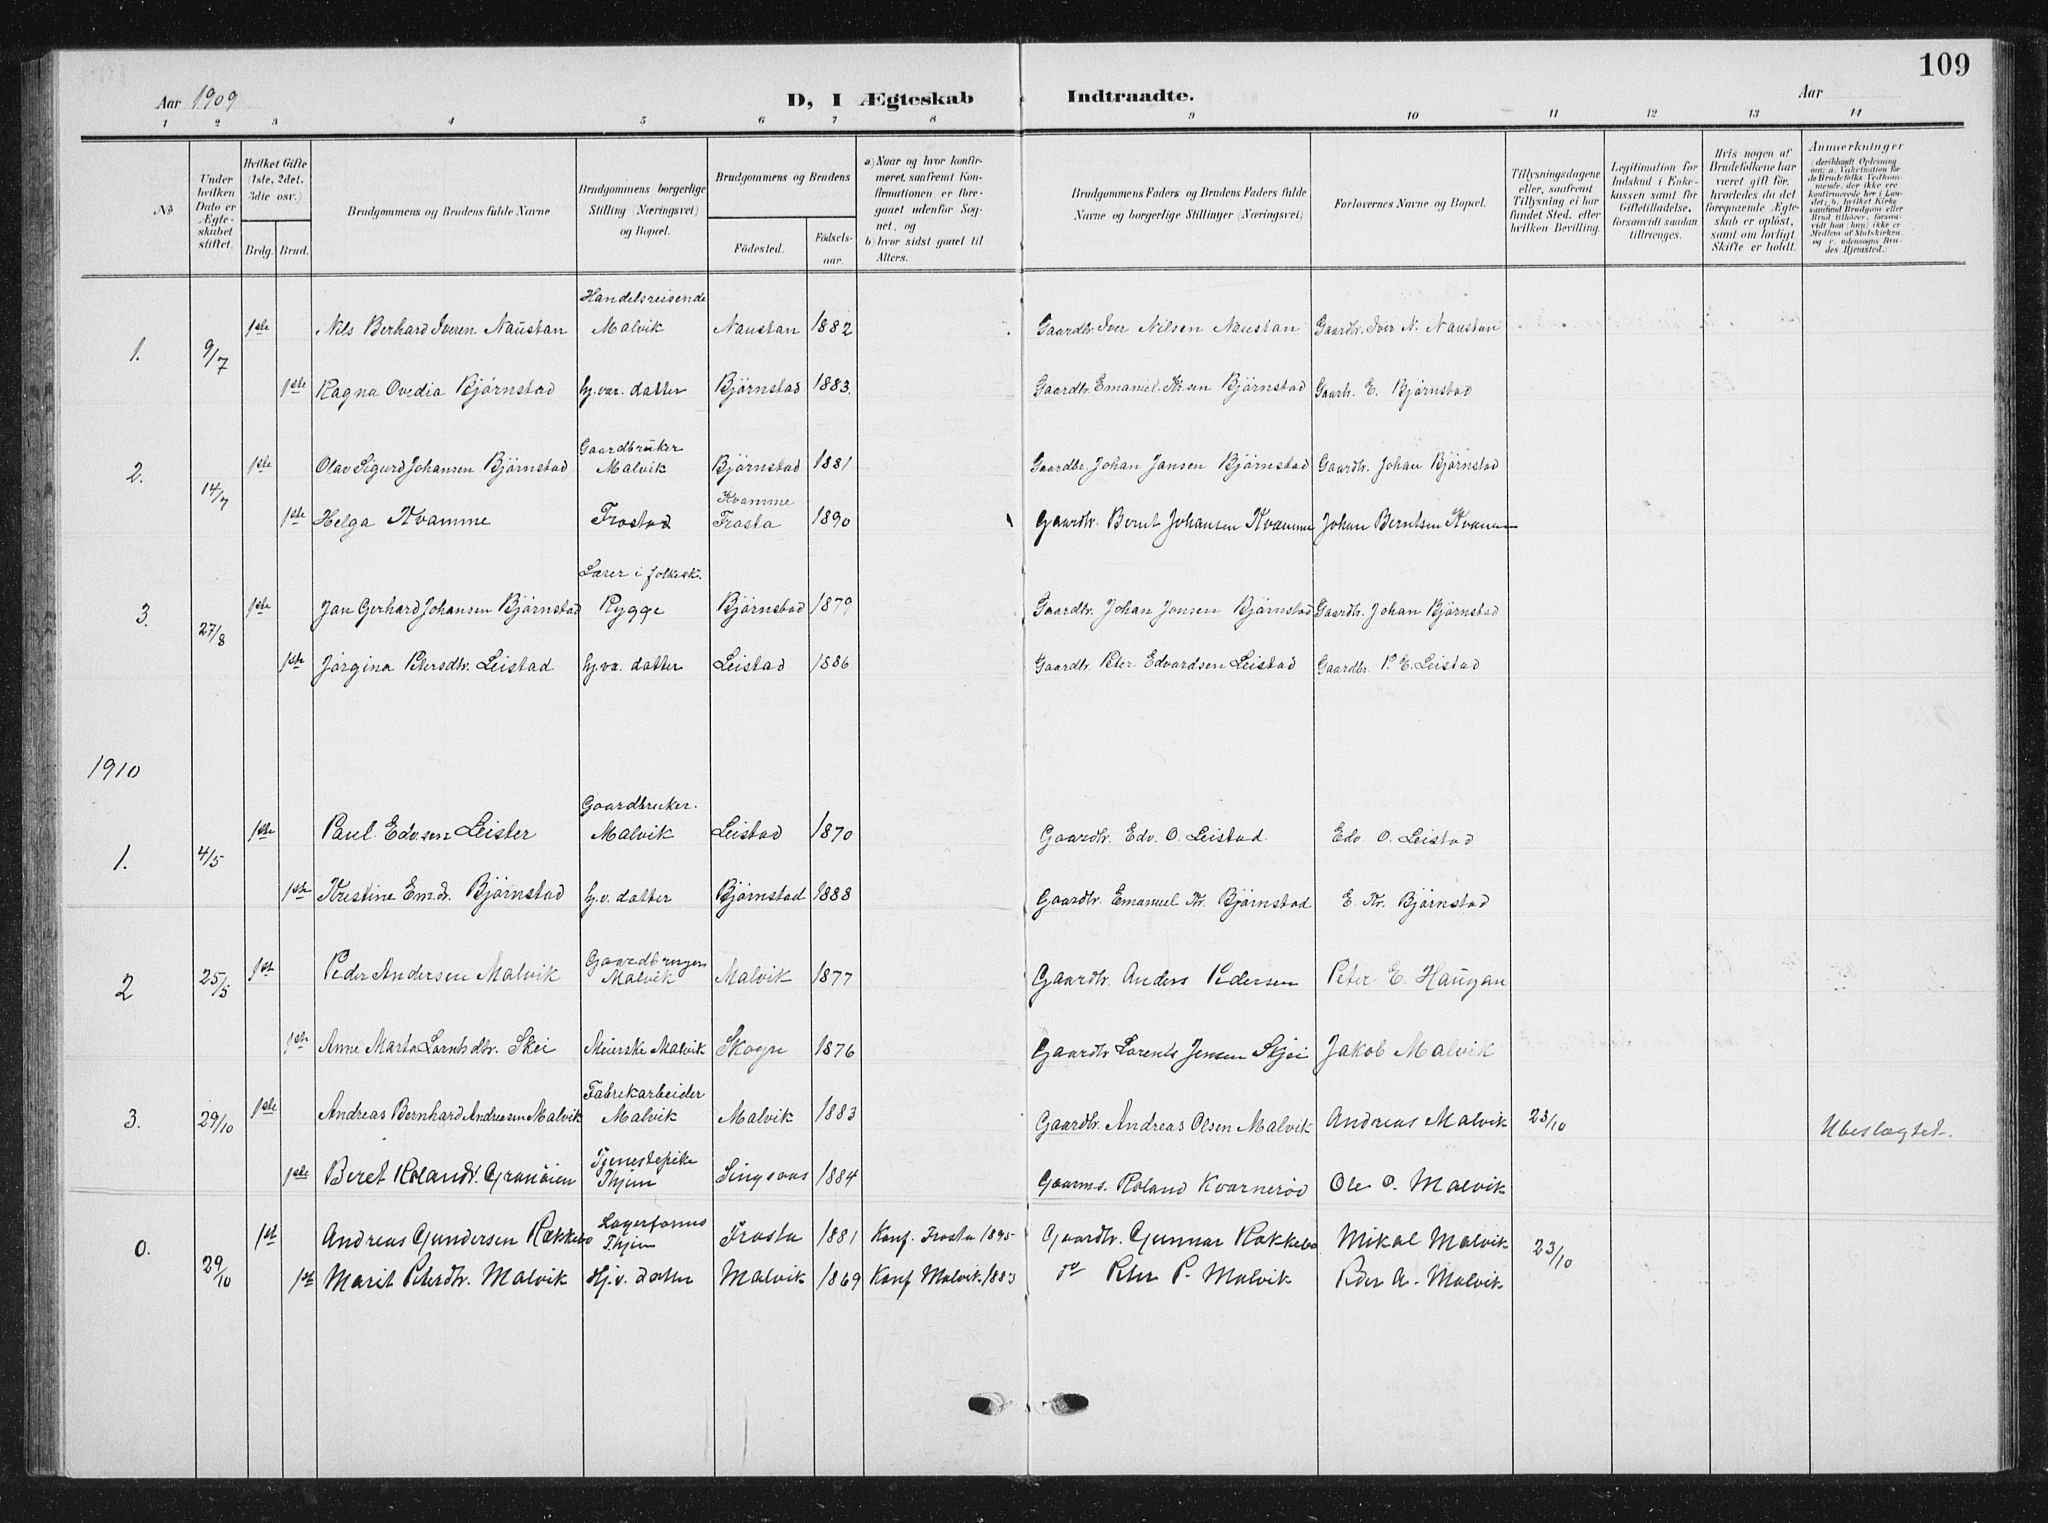 109
Aar 1909 D, I Ægteskab Indtraadte. Aar
1 2 3 4 5 6 7 8 9 10 11 12 13 14
No
Under hvilken Dato er Ægteskabet stiftet.
Hvilket Gifte (1ste, 2det, 3die osv.)
Brdg. Brud.
Brudgommens og Brudens fulde Navne
Brudgommens borgerlige Stilling (Næringsvei) og Bopæl.
Brudgommens og Brudens
Fødested. Fødselsaar.
a) Naar og hvor konfirmeret, saafremt Konfirmationen er foregaaet udenfor Sognet, og
b) hvor sidst gaaet til Alters.
Brudgommens Faders og Brudens Faders fulde Navne og borgerlige Stillinger (Næringsvei)
Forlovernes Navne og Bopæl.
Tillysningsdagene eller, saafremt Tillysning ei har fundet Sted, efter hvilken Bevilling.
Legitimation for Indskud i Enkekassen samt for Giftetilladelse, forsaavidt saadan tiltrænges.
Hvis nogen af Brudefolkene har været gift før, hvorledes da det foregaaende Ægteskab er opløst, samt om lovligt Skifte er holdt.
Anmerkninger
(deriblandt Oplysning om: a. Vaksination for de Brudefolks Vedkommende, der ikke ere konfirmerede her i Landet; b. hvilket Kirkesamfund Brudgom eller Brud tilhører, forsaavidt han (hun) ikke er Medlem af Statskirken, og c. udensogns Brudes Hjemsted.)
Handelsreisende
1. 9/7 1ste Nils Berhard Iversen Naustan Malvik Naustan 1882 Gaardbr. Iver Nilsen Naustan Gaardbr. Iver N. Naustan
1ste Ragna Ovedia Bjørnstad hj.var. datter Bjørnstad 1883. Gaardbr. Emanuel Kr.sen Bjørnstad Gaarbr. E. Bjørnstad
Gaardbruker
2. 14/7 1ste Olav Sigurd Johansen Bjørnstad Malvik Bjørnstad 1881 Gaardbr Johan Jansen Bjørnstad Gaardbr. Johan Bjørnstad
Kvamme
1ste Helga Kvamme Frostad Frosta 1890 Gaardbr. Bernt Johansen Kvamme Johan Berntsen Kvamme
Lærer i folkesk.
3. 27/8 1ste Jan Gerhard Johansen Bjørnstad Rygge Bjørnstad 1879 Gaardbr. Johan Jonsen Bjørnstad Gaardbr. Johan Bjørnstad
1ste Jørgina Petersdtr. Leistad hj.va. datter Leistad 1886 Gaardbr Peter Edvardsen Leistad Gaardbr. P. E. Leistad
1910
Gaardbruker.
1. 4/5 1ste Paul Edv.sen Leister Malvik Leistad 1870 Gaardbr. Edv. O. Leistad. Edv. O. Leistad
1ste Kristine Em.dr. Bjørnstad hj.v. datter Bjørnstad 1888 Gaardbr. Emanuel Kr. Bjørnstad E. Kr. Bjørnstad
2 25/5 1st Peder Andersen Malvik Malvik Malvik 1877 Gaardbr. Anders Pedersen Peter E. Haugan
1ste Anne Marta Lornts dtr. Skei Meierske Malvik 1876 Gaardbr Lorents Jensen Jakob Malvik
Fabrikarbeider
3. 29/10 1ste Andreas Bernhard Andreasen Malvik Malvik Malvik 1883 Gaardbr. Andreas Olsen Malvik Andreas Malvik 23/10 Ubeslægtet.
Tjenestepike
1ste Beret Rolandr. Granøien Thjem Singsaas 1884 Gaarms. Roland Kvarnerød Ole O. Malvik
0. 29/10 1st Andreas Gundersen Rækkebo Thjem Frosta 1881 Konf. Frosta 1895 Gaardbr. Gunnar Rækkebo Mikal Malvik 23/10
1st Marit Peterdtr. Malvik Hj. v. datter Malvik 1869 Konf Malvik 1883 do Peter P. Malvik Peder A. Malvik